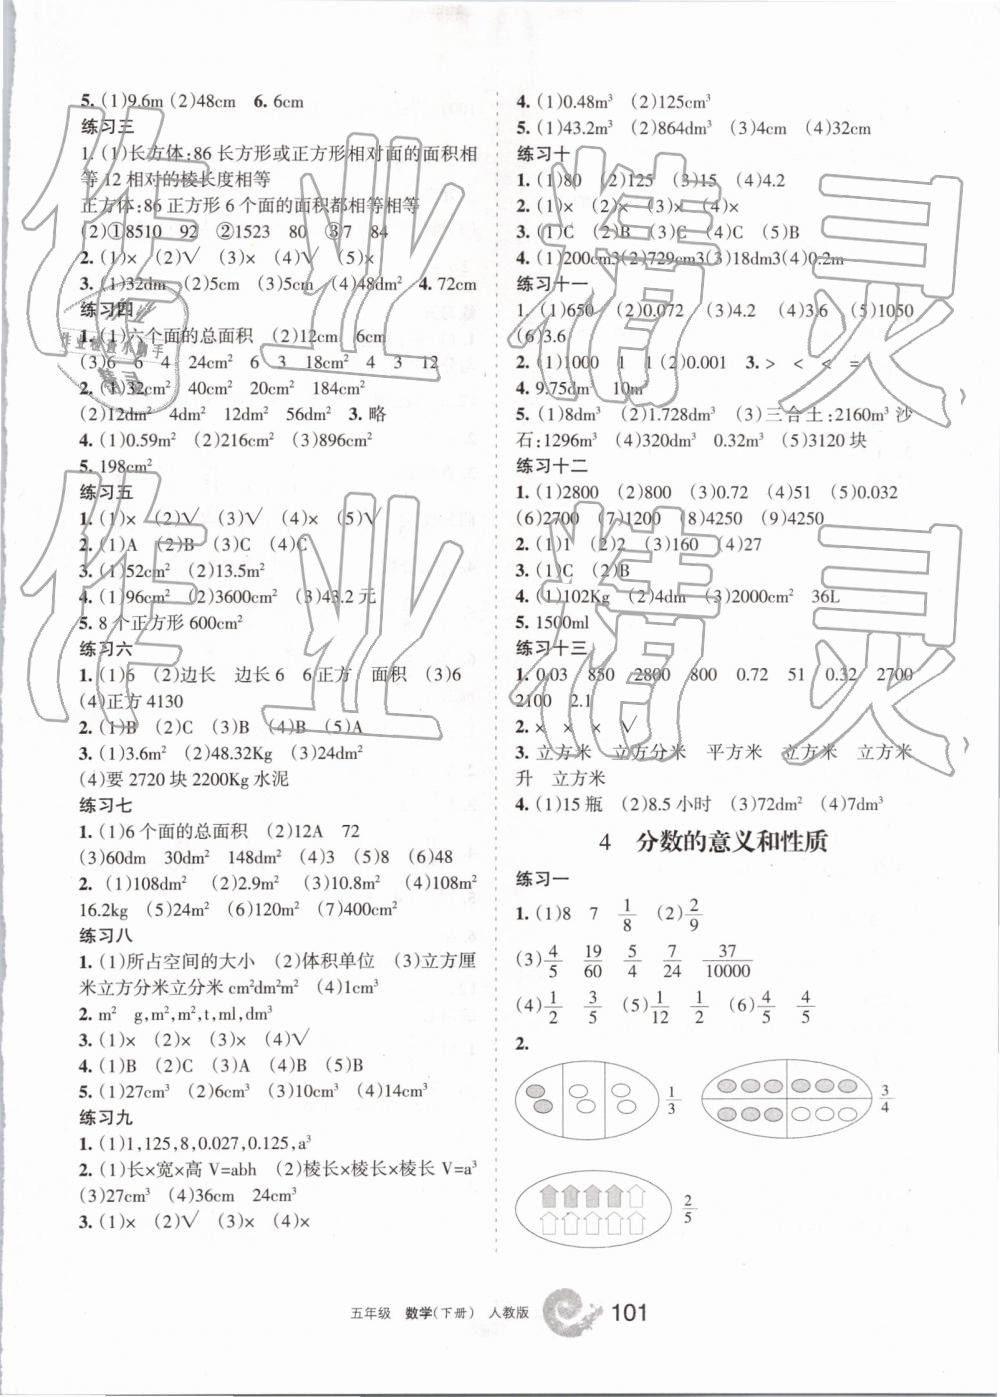 5. (1)9.6m (2)48cm 6. 6cm
练习三
1. (1)长方体:86 长方形或正方形相对面的面积相
等12 相对的棱长度相等
正方体:86 正方形 6 个面的面积都相等相等
(2)①8510 92 ②1523 80 ③7 84
2. (1)× (2)√ (3)× (4)√ (5)×
3. (1)32dm (2)5cm (3)5cm (4)48dm² 4. 72cm
练习四
1. (1)六个面的总面积 (2)12cm 6cm
(3)6 6 4 24cm² 6 3 18cm² 4 3 12
2. (1)32cm² 40cm² 20cm² 184cm²
(2)12dm² 4dm² 12dm² 56dm² 3. 略
4. (1)0.59m² (2)216cm² (3)896cm²
5. 198cm²
练习五
1. (1)× (2)√ (3)√ (4)× (5)√
2. (1)A (2)B (3)C (4)C
3. (1)52cm² (2)13.5m²
4. (1)96cm² (2)3600cm² (3)43.2 元
5. 8 个正方形 600cm²
练习六
1. (1)6 (2)边长 边长 6 6 正方 面积 (3)6
(4)正方 4130
2. (1)B (2)C (3)B (4)B (5)A
3. (1)3.6m² (2)48.32Kg (3)24dm²
(4)要 2720 块 2200Kg 水泥
练习七
1. (1)6 个面的总面积 (2)12A 72
(3)60dm 30dm² 148dm² (4)3 (5)8 (6)48
2. (1)108dm² (2)2.9m² (3)10.8m² (4)108m²
16.2kg (5)24m² (6)120m² (7)400cm²
练习八
1. (1)所占空间的大小 (2)体积单位 (3)立方厘
米立方分米立分米 cm²dm²m² (4)1cm³
2. m² g,m²,m²,t,ml,dm³
3. (1)× (2)× (3)× (4)√
4. (1)B (2)C (3)A (4)B (5)B
5. (1)27cm³ (2)6cm³ (3)10cm³ (4)14cm³
练习九
1. (1)1,125,8,0.027,0.125,a³
2. (1)长×宽×高 V=abh (2)棱长×棱长×棱长 V=a³
(3)27cm³ (4)36cm 24cm³
3. (1)× (2)√ (3)× (4)×
4. (1)0.48m³ (2)125cm³
5. (1)43.2m³ (2)864dm³ (3)4cm (4)32cm
练习十
1. (1)80 (2)125 (3)15 (4)4.2
2. (1)× (2)× (3)× (4)×
3. (1)C (2)B (3)C (4)C (5)B
4. (1)200cm3(2)729cm3(3)18dm3(4)0.2m
练习十一
1. (1)650 (2)0.072 (3)4.2 (4)3.6 (5)1050
(6)3.6
2. (1)1000 1 1 (2)0.001 3. > < < =
4. 9.75dm³ 10m
5. (1)8dm³ (2)1.728dm³ (3)三合土:2160m³ 沙
石:1296m³ (4)320dm³ 0.32m³ (5)3120 块
练习十二
1. (1)2800 (2)800 (3)0.72 (4)51 (5)0.032
(6)2700 (7)1200 (8)4250 (9)4250
2. (1)1 (2)2 (3)160 (4)27
3. (1)C (2)B
4. (1)102Kg (2)4dm (3)2000cm² 36L
5. 1500ml
练习十三
1. 0.03 850 2800 800 0.72 51 0.32 2700
2100 2.1
2. × × × √
3. 立方米 立方分米 平方米 立方米 立方米
升 立方米
4. (1)15 瓶 (2)8.5 小时 (3)72dm² (4)7dm³
4 分数的意义和性质
练习一
1. (1)8 7 1/8 (2)2/9
(3)4/5 19/60 5/4 7/24 37/10000
(4)1/2 3/5 (5)1/12 1/2 (6)4/5 4/5
2.
1/3 3/4
2/5
五年级 数学(下册) 人教版 101
作业精灵
作业精灵